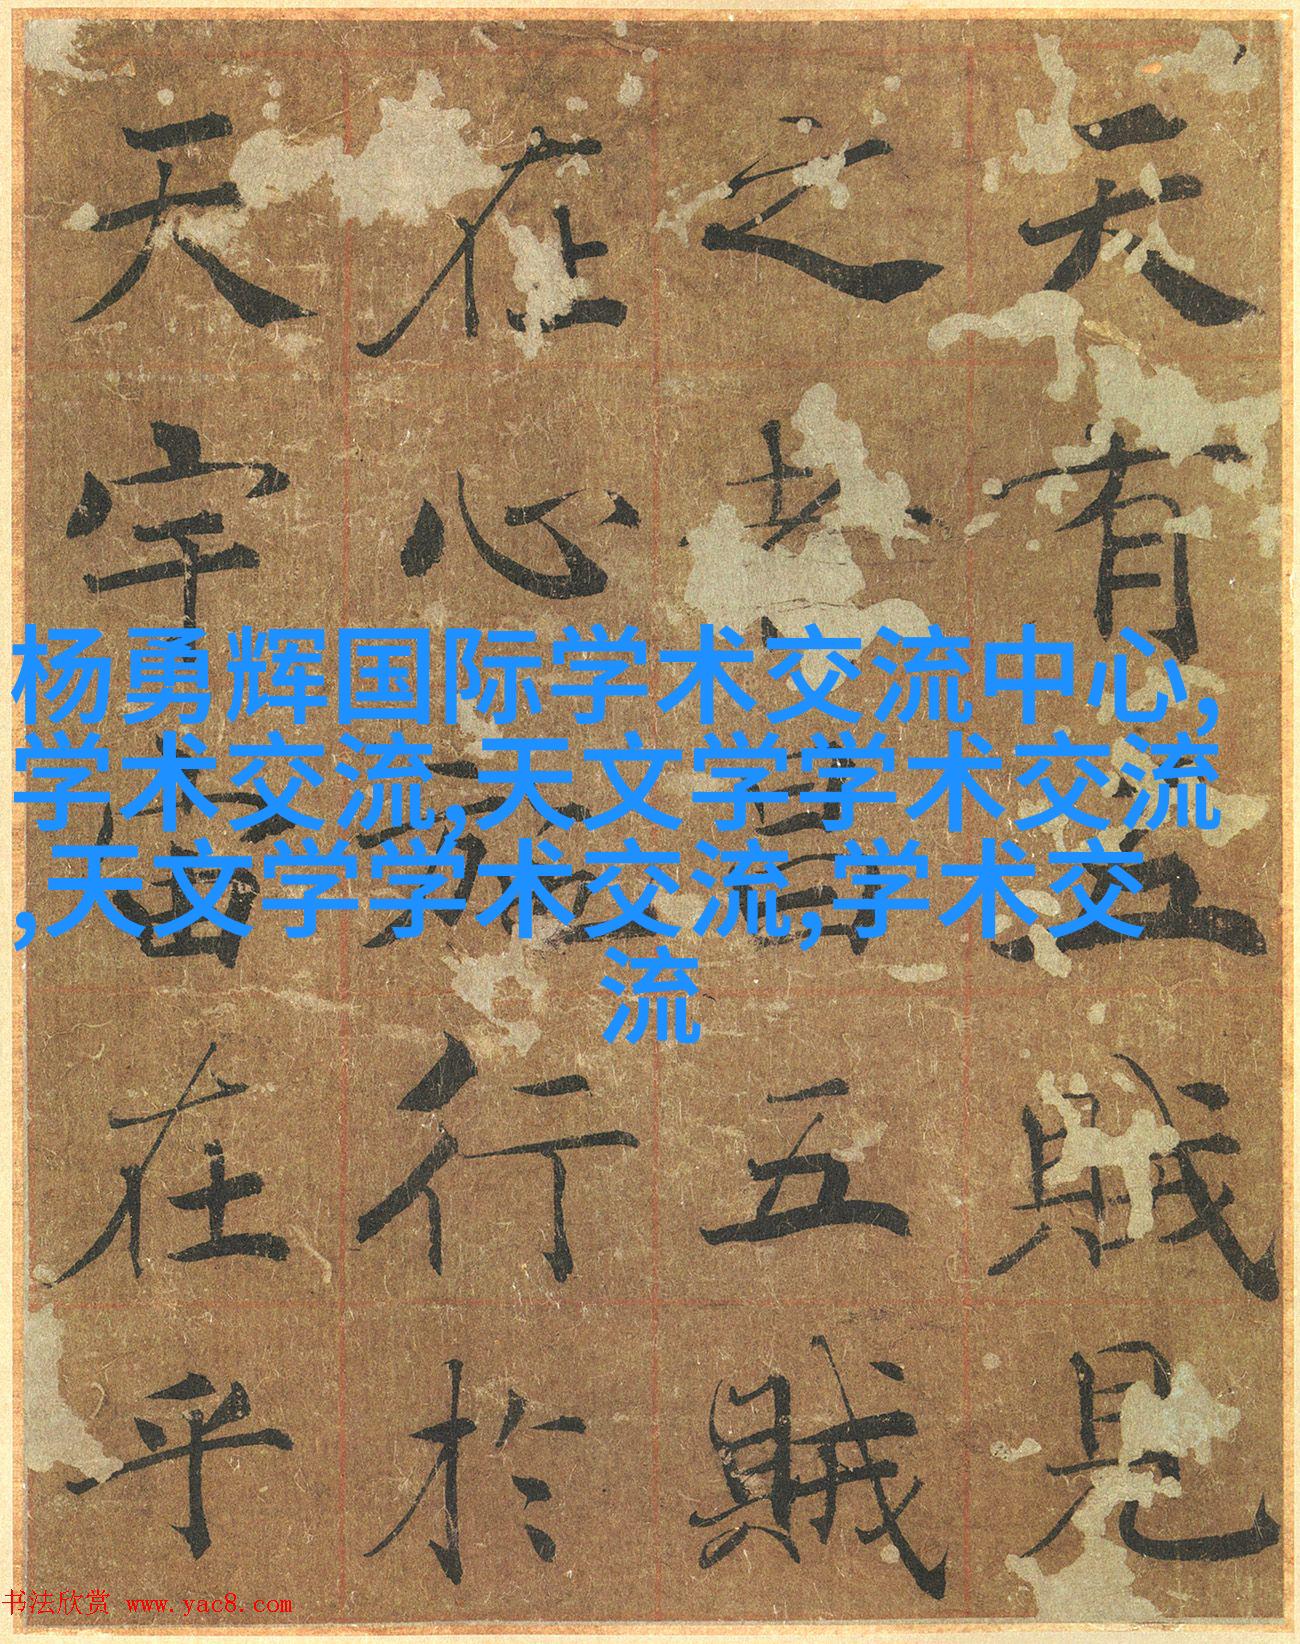 天有五賊見
之者昌五賊
在心施行於
天宇宙在乎
杨勇辉国际学术交流中心,
学术交流,天文学学术交流
,天文学学术交流,学术交
流
书法欣赏 www.yac8.com